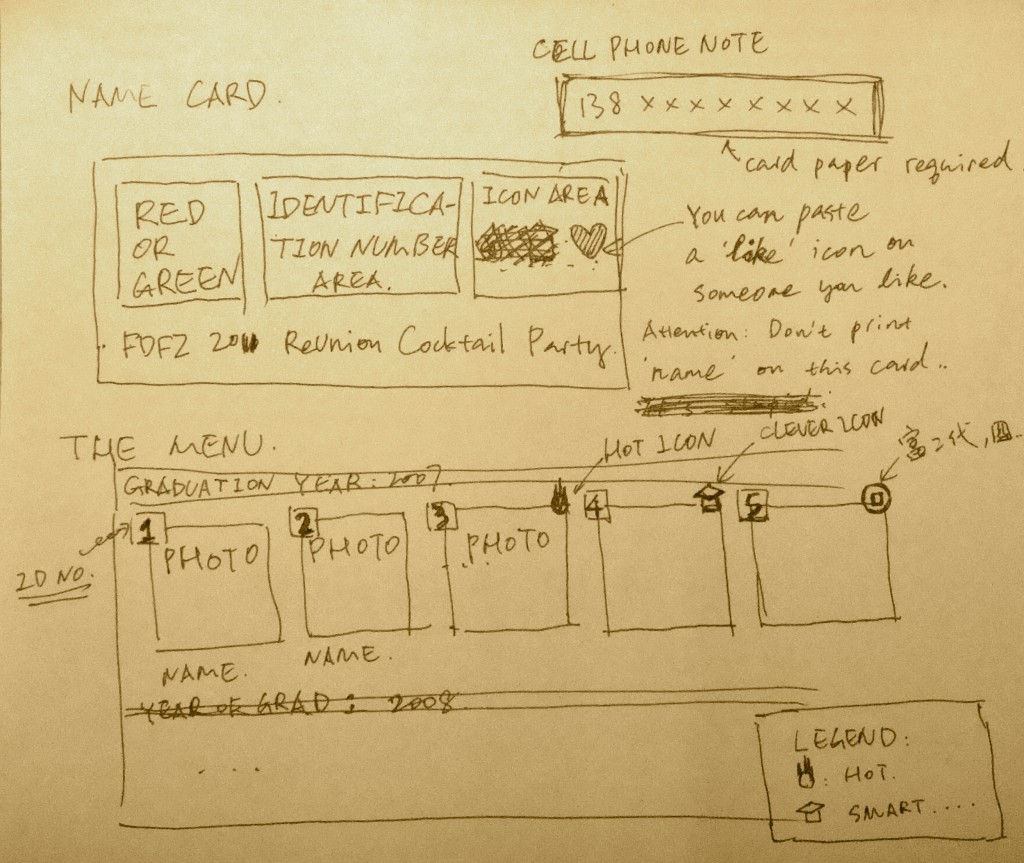 CELL PHONE NOTE
NAME CARD.
138 x x x x x x x x
card paper required.
RED
OR
GREEN
IDENTIFICA-
TION NUMBER
AREA.
ICON AREA
You can paste
a 'like' icon on
someone you like.
FDFZ 2011 Reunion Cocktail Party.
Attention: Don't print
'name' on this card..
THE MENU.
HOT ICON
CLEVER ICON
富二代,
GRADUATION YEAR: 2007.
1
2
3
4
5
PHOTO
PHOTO
PHOTO
ID NO.
NAME.
NAME.
YEAR OF GRAD: 2008.
....
LEGEND:
: HOT.
SMART....